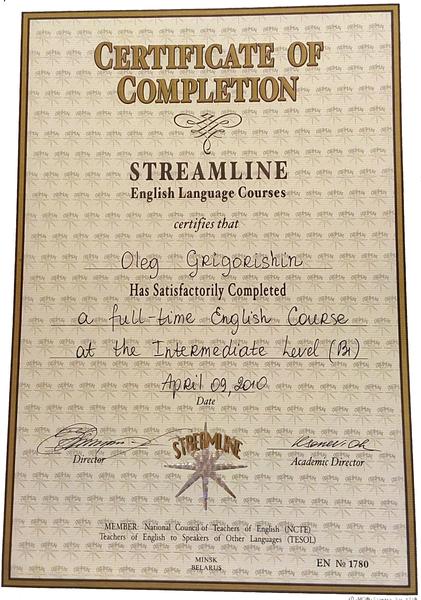 CERTIFICATE OF
COMPLETION
STREAMLINE
English Language Courses
certifies that
Oleg Grigorishin
Has Satisfactorily Completed
a full-time English Course
at the Intermediate Level (B1)
April 09, 2010
Date
Director
STREAMLINE
Academic Director
MEMBER: National Council of Teachers of English (NCTE)
Teachers of English to Speakers of Other Languages (TESOL)
MINSK
BELARUS
EN № 1780